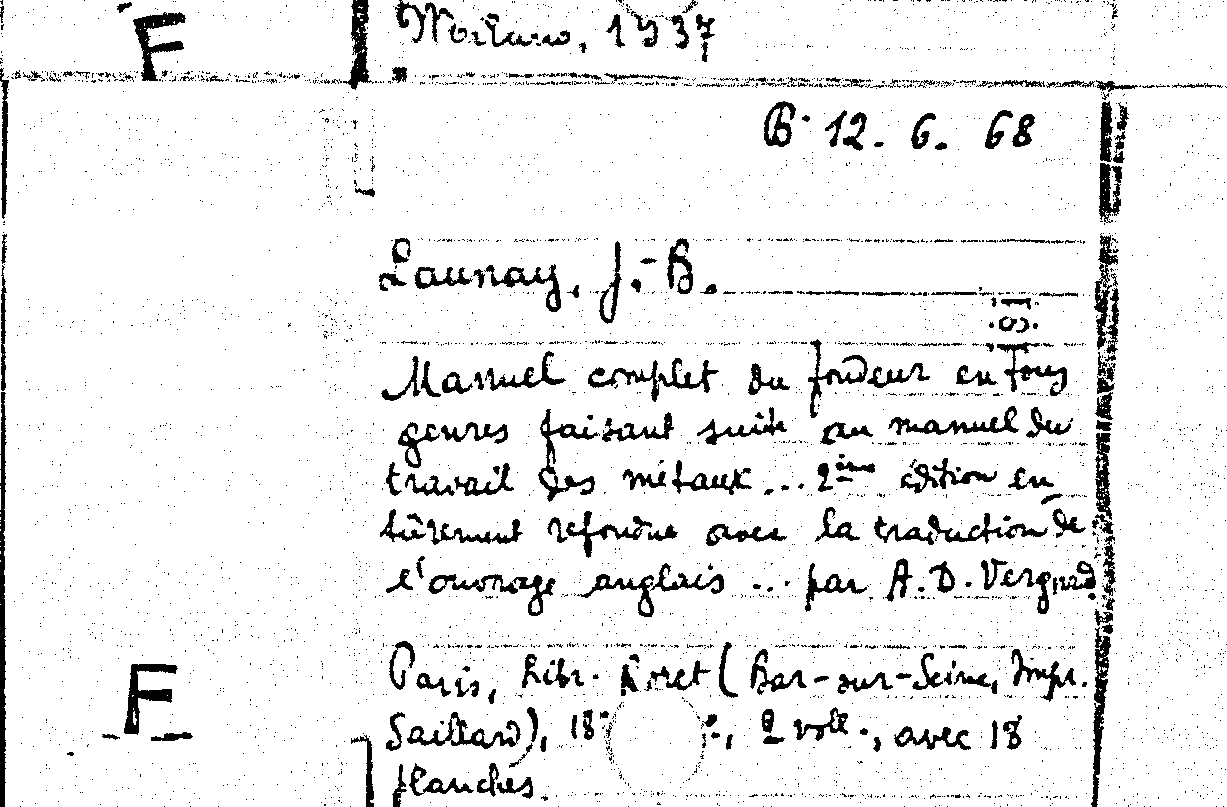 F
Milano, 1937
B. 12. 6. 68
Launay, J.-B.
Manuel complet du fondeur en tous
genres faisant suite au manuel du
travail des métaux ... 2ième édition en
tièrement refondue avec la traduction de
l'ouvrage anglais ... par A. D. Vergnaud.
F
Paris, Libr. Roret (Bar-sur-Seine, Impr.
Saillard), 18 , 2 voll., avec 18
planches.